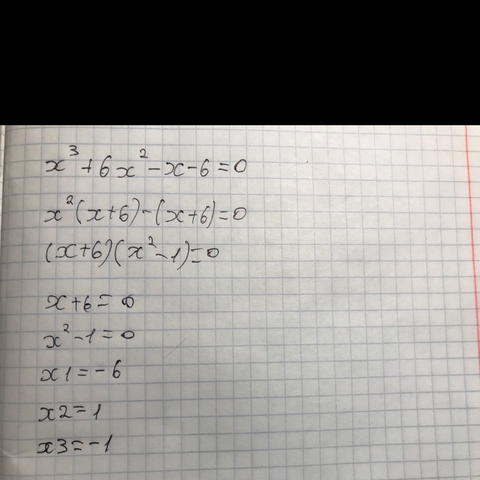 x³+6x²-x-6=0
x²(x+6)-(x+6)=0
(x+6)(x²-1)=0
x+6=0
x²-1=0
x1=-6
x2=1
x3=-1